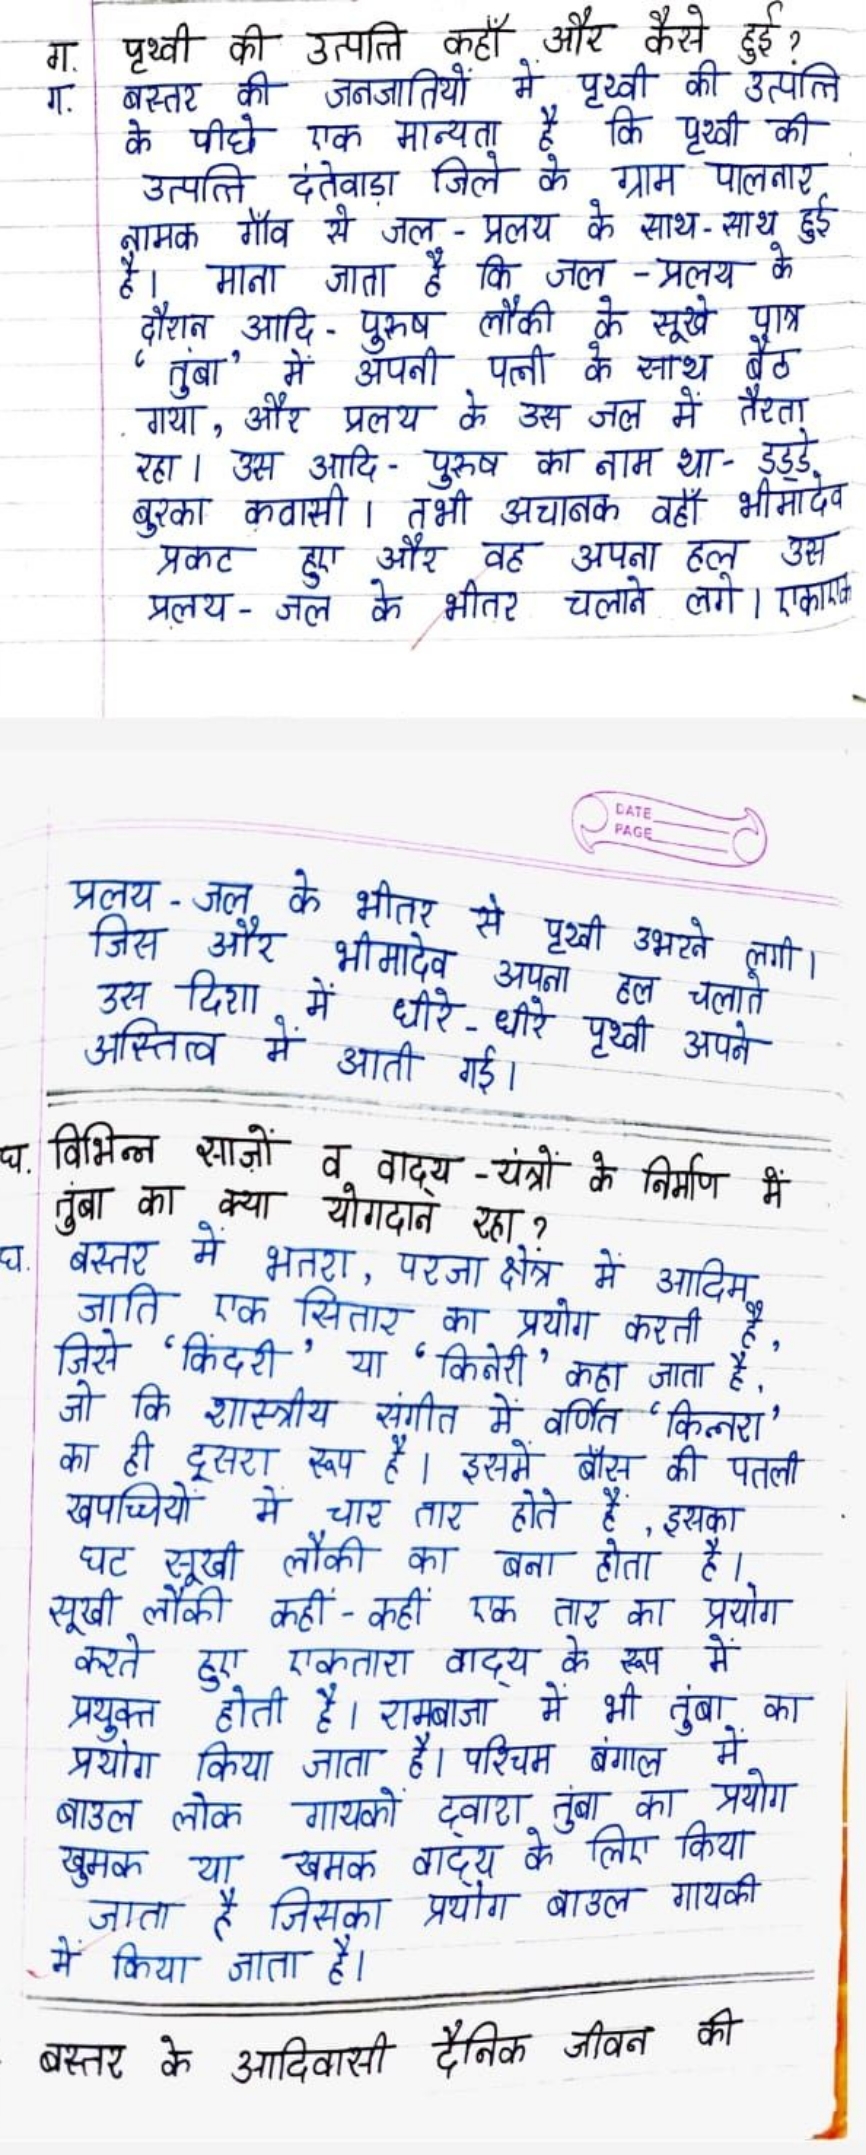 ग. पृथ्वी की उत्पत्ति कहाँ और कैसे हुई?
ग. बस्तर की जनजातियों में पृथ्वी की उत्पत्ति
के पीछे एक मान्यता है कि पृथ्वी की
उत्पत्ति दंतेवाड़ा जिले के ग्राम पालनार
नामक गाँव से जल - प्रलय के साथ-साथ हुई
है। माना जाता है कि जल - प्रलय के
दौरान आदि - पुरुष लौकी के सूखे पात्र
'तुंबा' में अपनी पत्नी के साथ बैठ
गया, और प्रलय के उस जल में तैरता
रहा। उस आदि - पुरुष का नाम था- डड्डे
बुरका कवासी। तभी अचानक वहाँ भीमादेव
प्रकट हुए और वह अपना हल उस
प्रलय - जल के भीतर चलाने लगे। एकाएक
DATE
PAGE
प्रलय - जल के भीतर से पृथ्वी उभरने लगी।
जिस और भीमादेव अपना हल चलाते
उस दिशा में धीरे - धीरे पृथ्वी अपने
अस्तित्व में आती गई।
घ. विभिन्न साज़ों व वाद्य - यंत्रों के निर्माण में
तुंबा का क्या योगदान रहा?
घ. बस्तर में भतरा, परजा क्षेत्र में आदिम
जाति एक सितार का प्रयोग करती है,
जिसे 'किंदरी' या 'किनेरी' कहा जाता है,
जो कि शास्त्रीय संगीत में वर्णित 'किन्नरा'
का ही दूसरा रूप है। इसमें बाँस की पतली
खपच्चियों में चार तार होते हैं, इसका
घट सूखी लौकी का बना होता है।
सूखी लौकी कहीं - कहीं एक तार का प्रयोग
करते हुए एकतारा वाद्य के रूप में
प्रयुक्त होती है। रामबाजा में भी तुंबा का
प्रयोग किया जाता है। पश्चिम बंगाल में
बाउल लोक गायकों द्वारा तुंबा का प्रयोग
खुमक या खमक वाद्य के लिए किया
जाता है जिसका प्रयोग बाउल गायकी
में किया जाता है।
बस्तर के आदिवासी दैनिक जीवन की